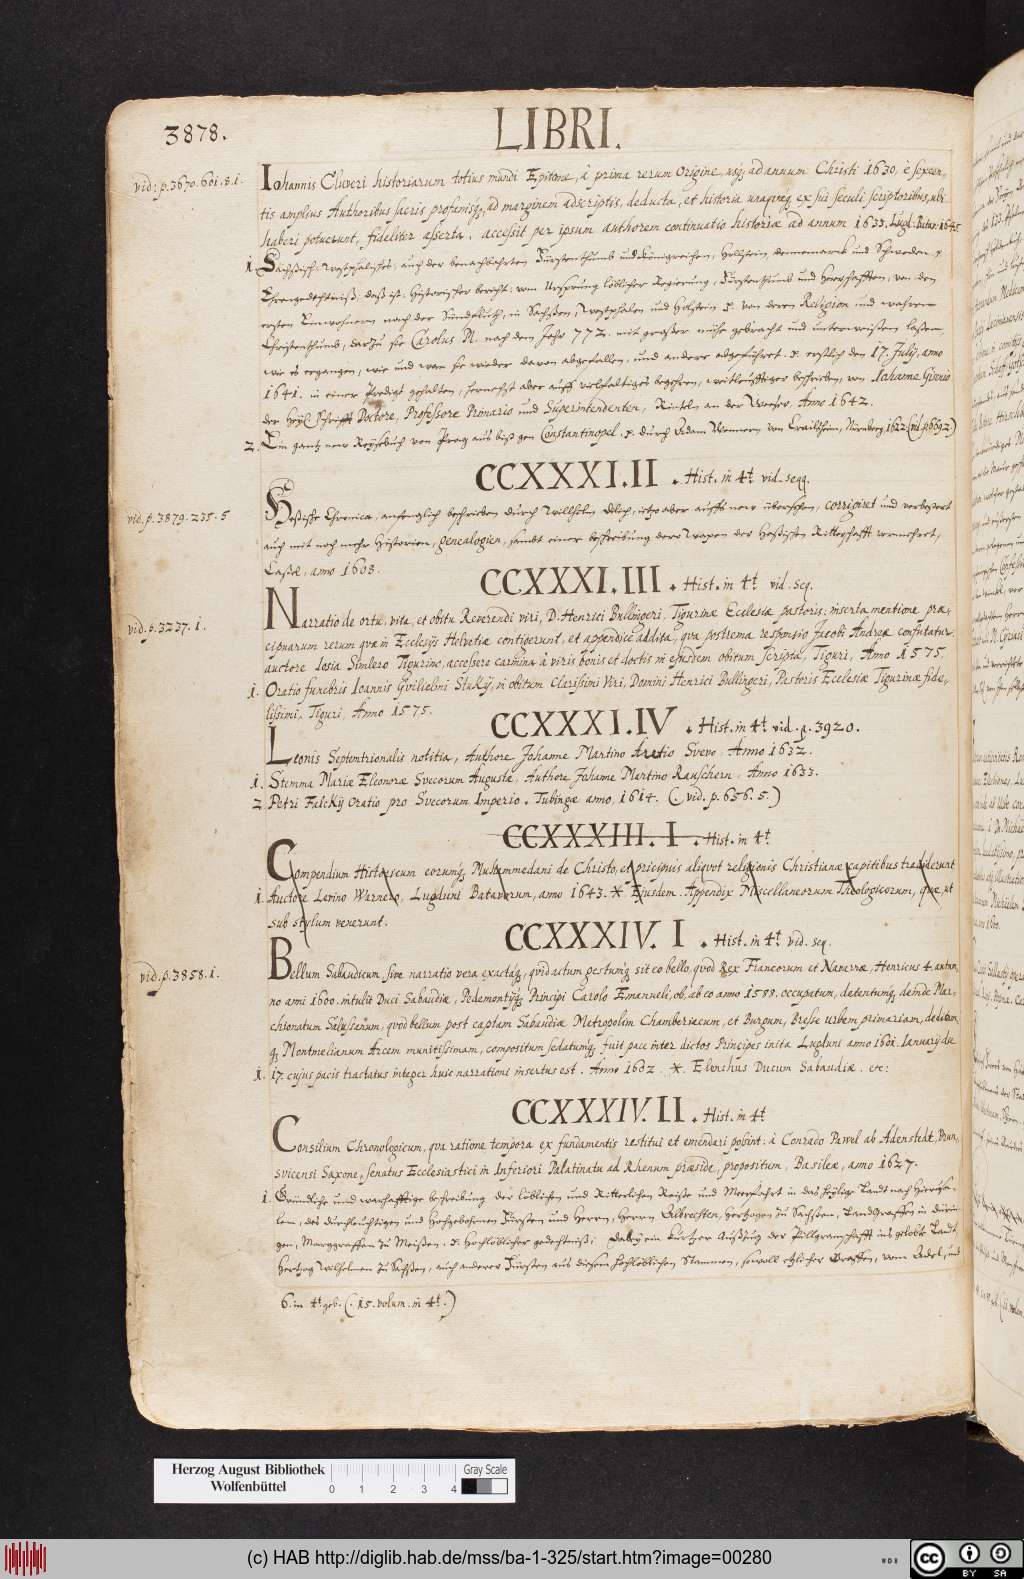 3878.
LIBRI.
vid: p. 3670. 601. 8. i.
Iohannis Cluveri historiarum totius mundi Epitome, à prima rerum origine, usq; ad annum Christi 1630, è sexcen,,
tis amplius Authoribus sacris profanisq;, ad marginem adscriptis, deducta, et historia unaquaeq; ex sui seculi scriptoribus, ubi
haberi potuerunt, fideliter asserta. accessit per ipsum authorem continuatio historiae ad annum 1633. Lugd: Batav: 1645
1. Sächsisch-, Westphalisches, auch der benachbahrten Fürstenthumb und Königreichen, Holstein, Dennemarck und Schweden
Ehrengedächtniß, daß ist: Historischer bericht: vom Ursprung löblicher Regierung, Fürstenthumb und Herrschafften, von den
ersten Einwohnern nach der Sündfluth, in Sachsen, Westphalen und Holstein von deren Religion und wahren
Christenthumb, darzu sie Carolus M. nach dem Jahr 772. mit grosser mühe gebracht und unterweisen lassen,
wie es ergangen, wie und wan sie wieder davon abgefallen, und andere abgeführet. erstlich den 17. Julij, anno
1641. in einer Predigt gehalten, hernacher aber auff vielfaltiges begehren, weitleufftiger beschrieben, von Johanne Gisenio
der Heyl. Schrifft Doctore, Professore Primario und Superintendenten, Rinteln an der Weeser, Anno 1642.
2. Ein gantz new Reysebuch von Prag aus biß gen Constantinopel. durch Adam Wennern von Crailsheim, Nürnberg 1622. (vid. p. 6692.)
CCXXXI.II . Hist. in 4t vid. seqq.
vid. p. 3879. 235. 5
Hessische Chronica, anfenglich beschrieben durch Wilhelm Dilich, itzo aber auffs new übersehen, corrigiret und verbessert
auch mit noch mehr Historien, genealogien, sambt einer beschreibung derer Wapen der Hessischen Ritterschafft vermehret,
Cassel, anno 1608.
CCXXXI.III . Hist. in 4t vid. seq.
vid. p. 3237. 1.
Narratio de ortu, vita, et obitu Reverendi viri, D. Henrici Bullingeri, Tigurinae Ecclesiae pastoris: inserta mentione prae,,
cipuarum rerum quae in Ecclesijs Helvetiae contigerunt, et appendice addita, qua postrema responsio Jacobi Andreae confutatur.
auctore Iosia Simlero Tigurino, accessere carmina à viris bonis et doctis in ejusdem obitum scripta, Tiguri, Anno 1575.
1. Oratio funebris Ioannis Guilielmi Stukij, in obitum clarissimi Viri, Domini Henrici Bullingeri, Pastoris Ecclesiae Tigurinae fide,,
lissimi, Tiguri, Anno 1575.
CCXXXI.IV . Hist. in 4t vid. p. 3920.
Leonis Septentrionalis notitia, Authore Johanne Martino Aratio Svevo, Anno 1632.
1. Stemma Mariae Eleonorae Svecorum Augustae, Authore Johanne Martino Rauschern. Anno 1633.
2. Petri Falckij Oratio pro Svecorum Imperio. Tubingae anno, 1614. (. vid. p. 656. 5.)
CCXXXIII. I . Hist. in 4t
Compendium Historicum eorumq; Muhammedani de Christo, et praecipuis aliquot religionis Christianae capitibus tradiderunt
1. Auctore Levino Warnero, Lugduni Batavorum, anno 1643. * Ejusdem. Appendix Miscellaneorum Theologicorum, quae, ut
sub stylum venerunt.
CCXXXIV. I . Hist. in 4t vid. seq.
vid. p. 3858. 1.
Bellum Sabaudicum, sive narratio vera exactaq;, quid actum gestumq; sit eo bello, quod Rex Francorum et Navarrae, Henricus 4. autum,,
no anni 1600. intulit Duci Sabaudiae, Pedemontijq; Principi Carolo Emanueli, ob, ab eo anno 1588. occupatum, detentumq; deinde Mar,,
chionatum Salussanum, quod bellum post captam Sabaudiae Metropolim Chamberiacum, et Burgum, Bresse urbem primariam, deditam,,
q; Montmelianum Arcem munitissimam, compositum sedatumq; fuit pace inter dictos Principes inita Lugduni anno 1601. Ianuarij die
1. 17. cujus pacis tractatus integer huic narrationi insertus est. Anno 1602. * Elenchus Ducum Sabaudiae. etc:
CCXXXIV. II . Hist. in 4t
Consilium Chronologicum, qua ratione tempora ex fundamentis restitui et emendari possint: à Conrado Pawel ab Adenstedt, Brun,,
svicensi Saxone, senatus Ecclesiastici in Inferiori Palatinatu ad Rhenum praeside, propositum, Basileae, anno 1627.
1. Gründliche und warhafftige beschreibung der löblichen und Ritterlichen Reise und Meerfahrt in das heylige Landt nach Hierusa,,
lem, des durchleuchtigen und Hochgebohrnen Fürsten und Herrn, Herrn Albrechten, Hertzogen zu Sachsen, Landgraffen in Dürin
gen, Marggraffen zu Meißen. Hochlöblicher gedechtniß: Dabey ein kurtzer Außzug der Pillgramschafft ins gelobte Landt,
Hertzog Wilhelmen zu Sachsen, auch anderer Fürsten aus diesem hochlöblichen Stammen, sowoll etzlicher Graffen, vom Adel, und
6. in 4t geb. (. 15. volum. in 4t.)
Herzog August Bibliothek
Wolfenbüttel
0 1 2 3 4
Gray Scale
(c) HAB http://diglib.hab.de/mss/ba-1-325/start.htm?image=00280
WDB
cc BY SA